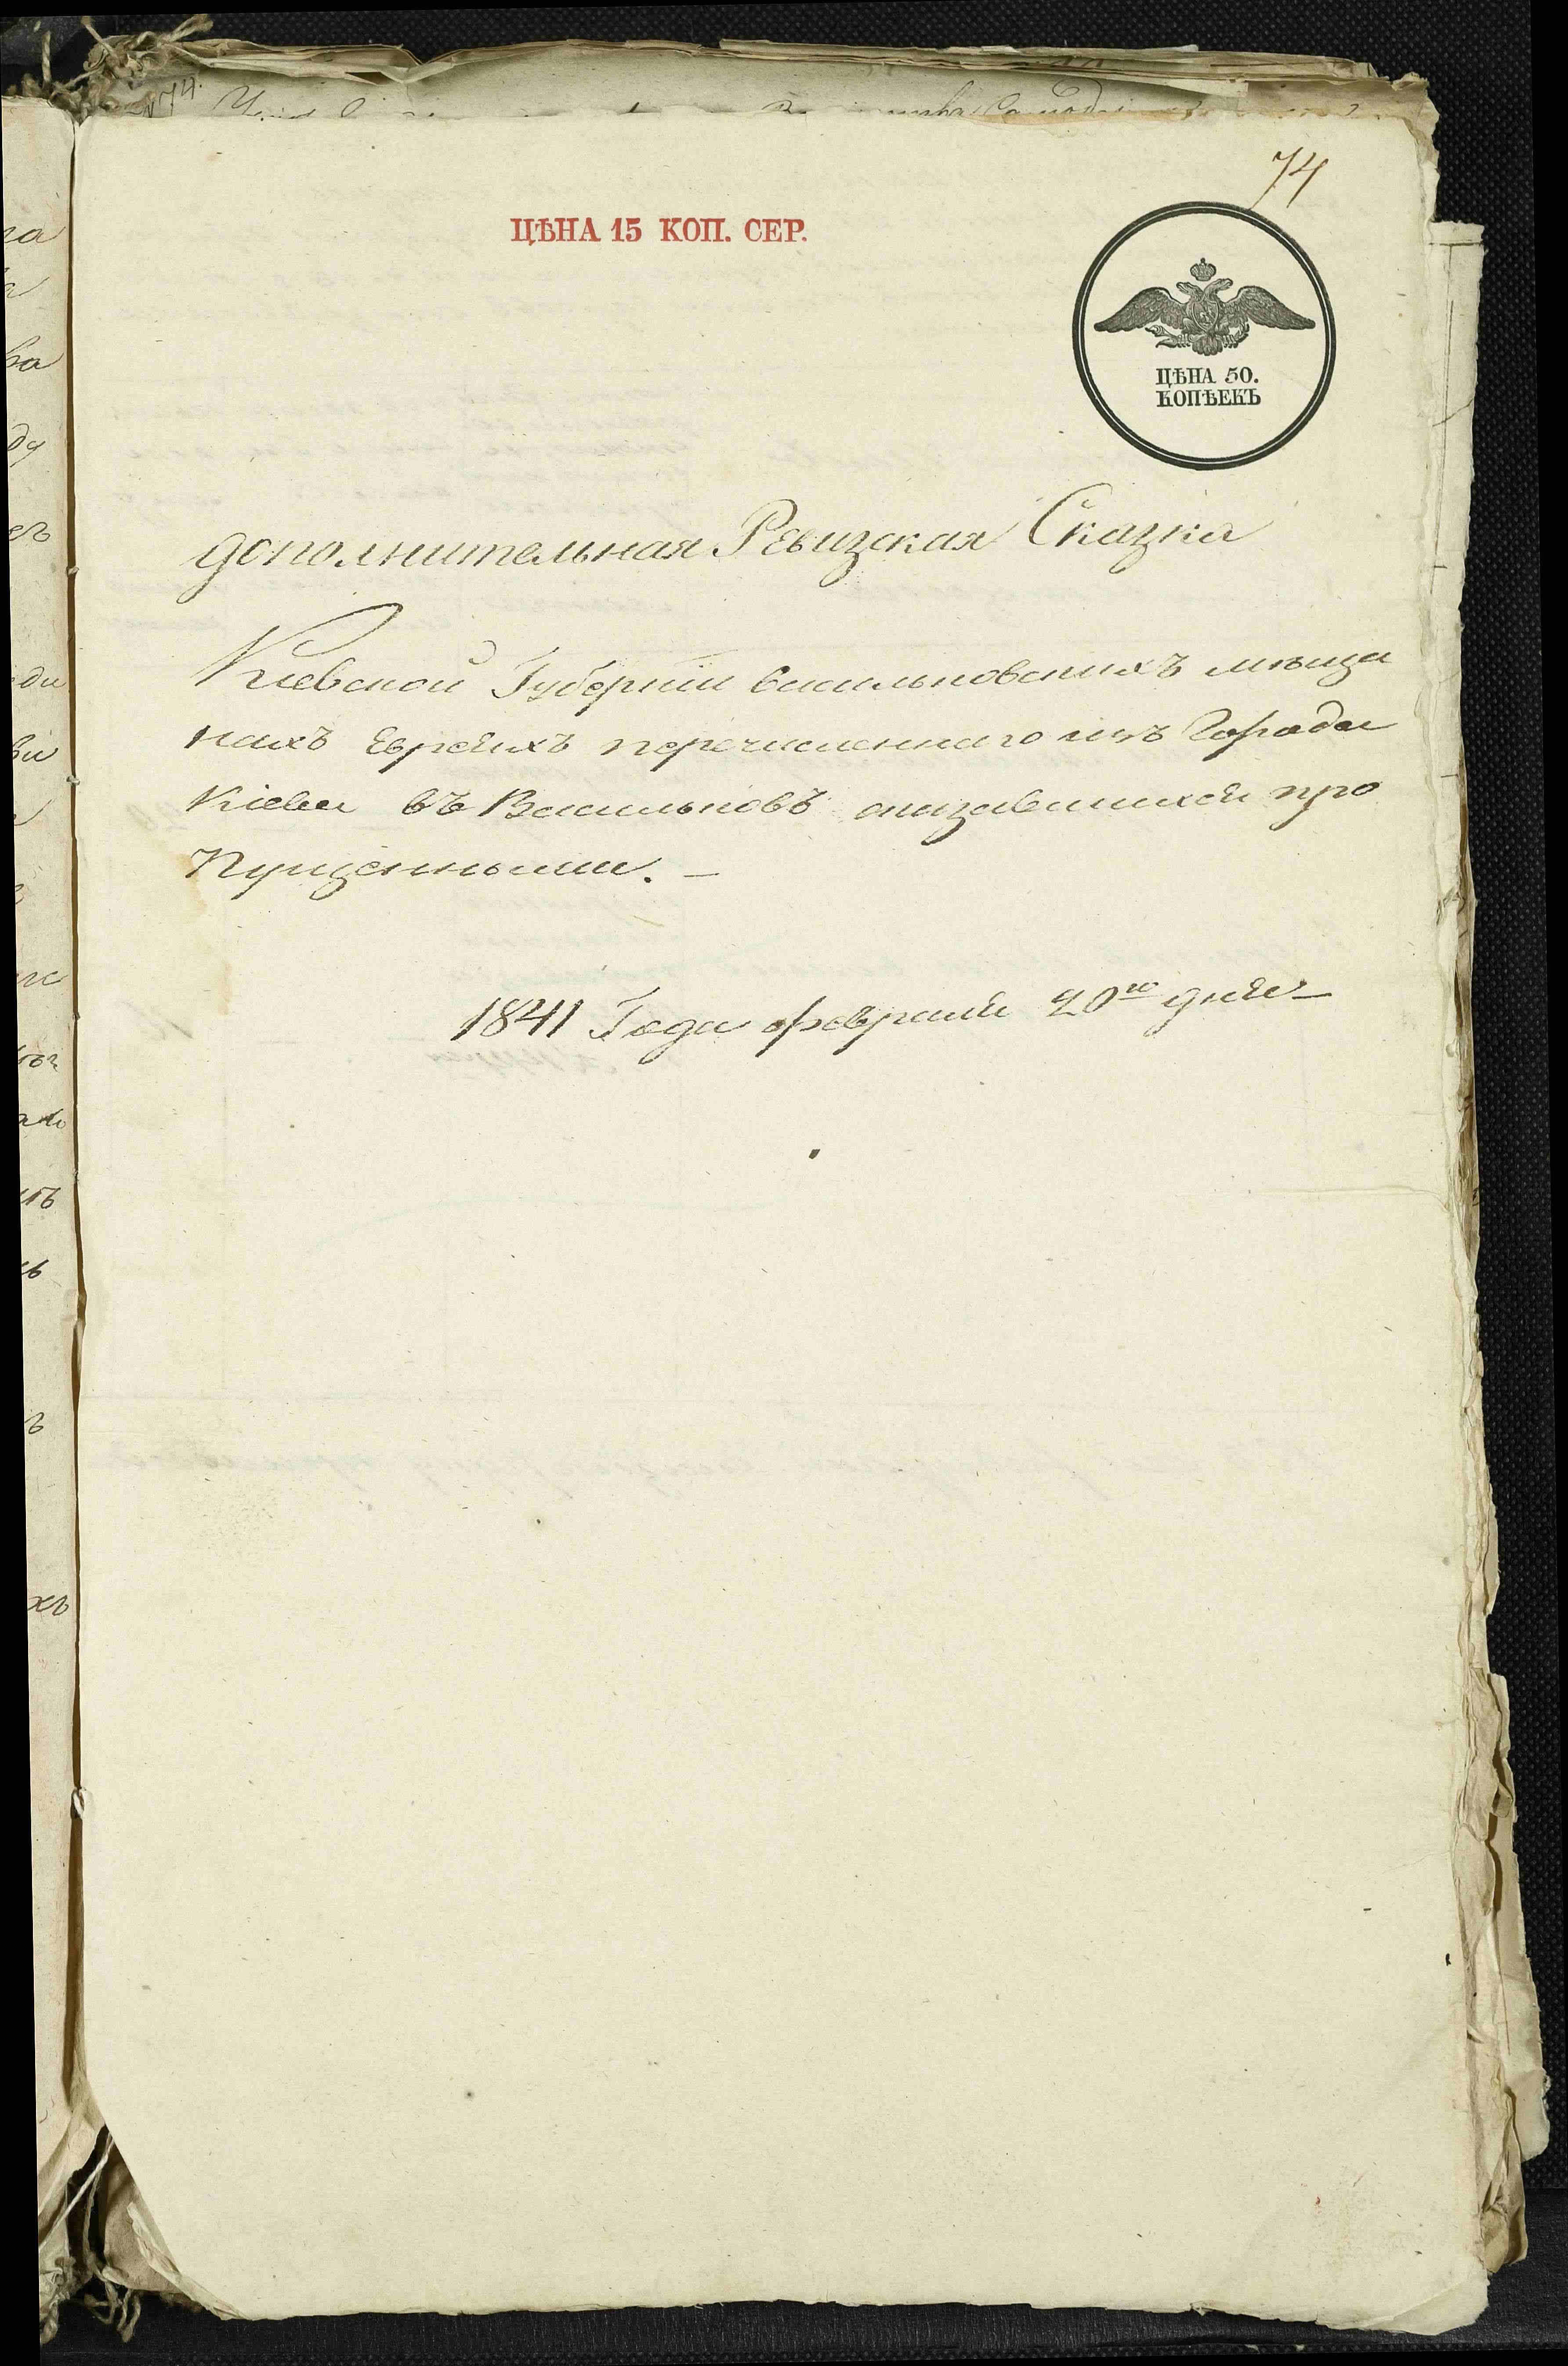 74
ЦѢНА 15 КОП. СЕР.
ЦѢНА 50.
КОПѢЕКЪ
дополнительная Ревизская Сказка
Кіевской Губерніи васильковскихъ мѣща
нахъ Евреяхъ перечисленнаго изъ Города
Кіева въ Васильковъ оказавшихся про
пущенными. —
1841 Года февраля 20го дня —